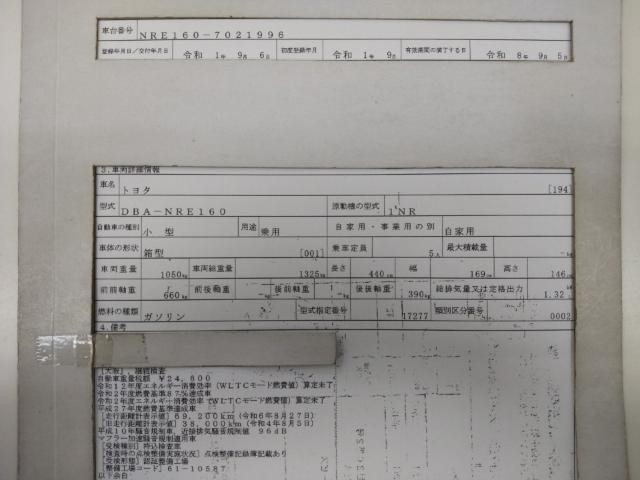 車台番号 NRE160-7021996
登録年月日／交付年月日 令和 1年 9月 6日 初度登録年月 令和 1年 9月 有効期間の満了する日 令和 8年 9月 5日
3.車両詳細情報
車名 トヨタ [194]
型式 DBA-NRE160 原動機の型式 1NR
自動車の種別 小型 用途 乗用 自家用・事業用の別 自家用
車体の形状 箱型 [001] 乗車定員 5人 最大積載量 -kg
車両重量 1050kg 車両総重量 1325kg 長さ 440cm 幅 169cm 高さ 146cm
前前軸重 660kg 前後軸重 -kg 後前軸重 -kg 後後軸重 390kg 総排気量又は定格出力 1.32
燃料の種類 ガソリン 型式指定番号 17277 類別区分番号 0002
4.備考
[大阪], 継続検査
自動車重量税額 ￥24,600
令和12年度エネルギー消費効率（WLTCモード燃費値）算定未了
令和2年度燃費基準87%達成車
令和2年度エネルギー消費効率（WLTCモード燃費値）算定未了
平成27年度燃費基準達成車
[走行距離計表示値] 69,200km（令和6年8月27日）
[旧走行距離計表示値] 38,000km（令和4年8月5日）
平成10年騒音規制車、近接排気騒音規制値 96dB
マフラー加速騒音規制適用車
[受検種別] 持込検査車
[検査時の点検整備実施状況] 点検整備記録簿記載あり
[受検形態] 認証整備工場
[整備工場コード] 61-10587
以下余白